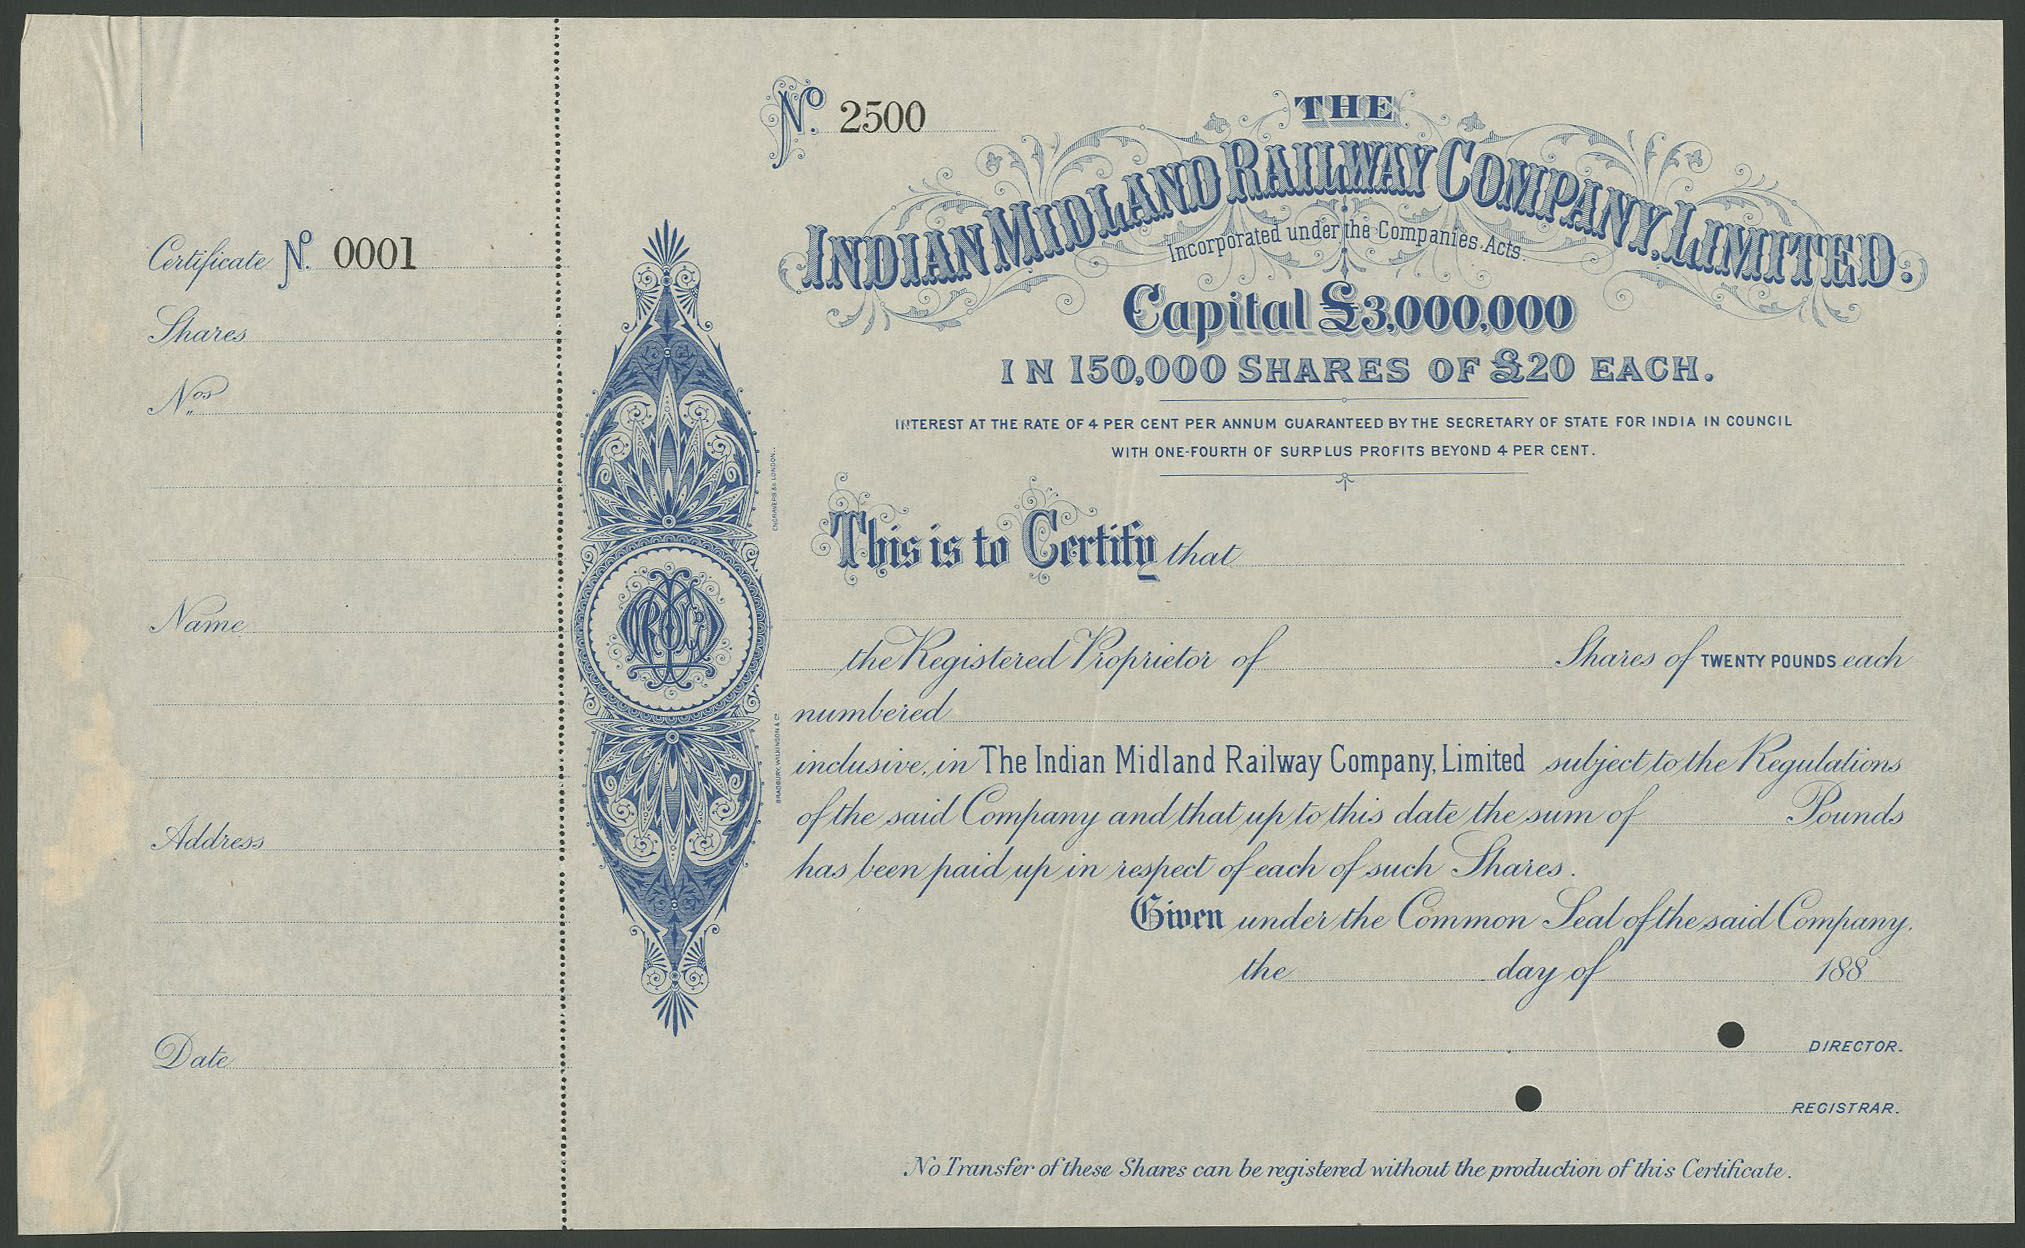 Certificate No. 0001
Shares
Nos
Name
Address
Date
No. 2500
THE
INDIAN MIDLAND RAILWAY COMPANY, LIMITED.
Incorporated under the Companies Acts.
Capital £3,000,000
IN 150,000 SHARES OF £20 EACH.
INTEREST AT THE RATE OF 4 PER CENT PER ANNUM GUARANTEED BY THE SECRETARY OF STATE FOR INDIA IN COUNCIL
WITH ONE-FOURTH OF SURPLUS PROFITS BEYOND 4 PER CENT.
This is to Certify that
the Registered Proprietor of Shares of TWENTY POUNDS each
numbered
inclusive, in The Indian Midland Railway Company, Limited subject to the Regulations
of the said Company and that up to this date the sum of Pounds
has been paid up in respect of each of such Shares.
Given under the Common Seal of the said Company.
the day of 188
DIRECTOR.
REGISTRAR.
No Transfer of these Shares can be registered without the production of this Certificate.
BRADBURY, WILKINSON & Co
ENGRAVERS &c LONDON.